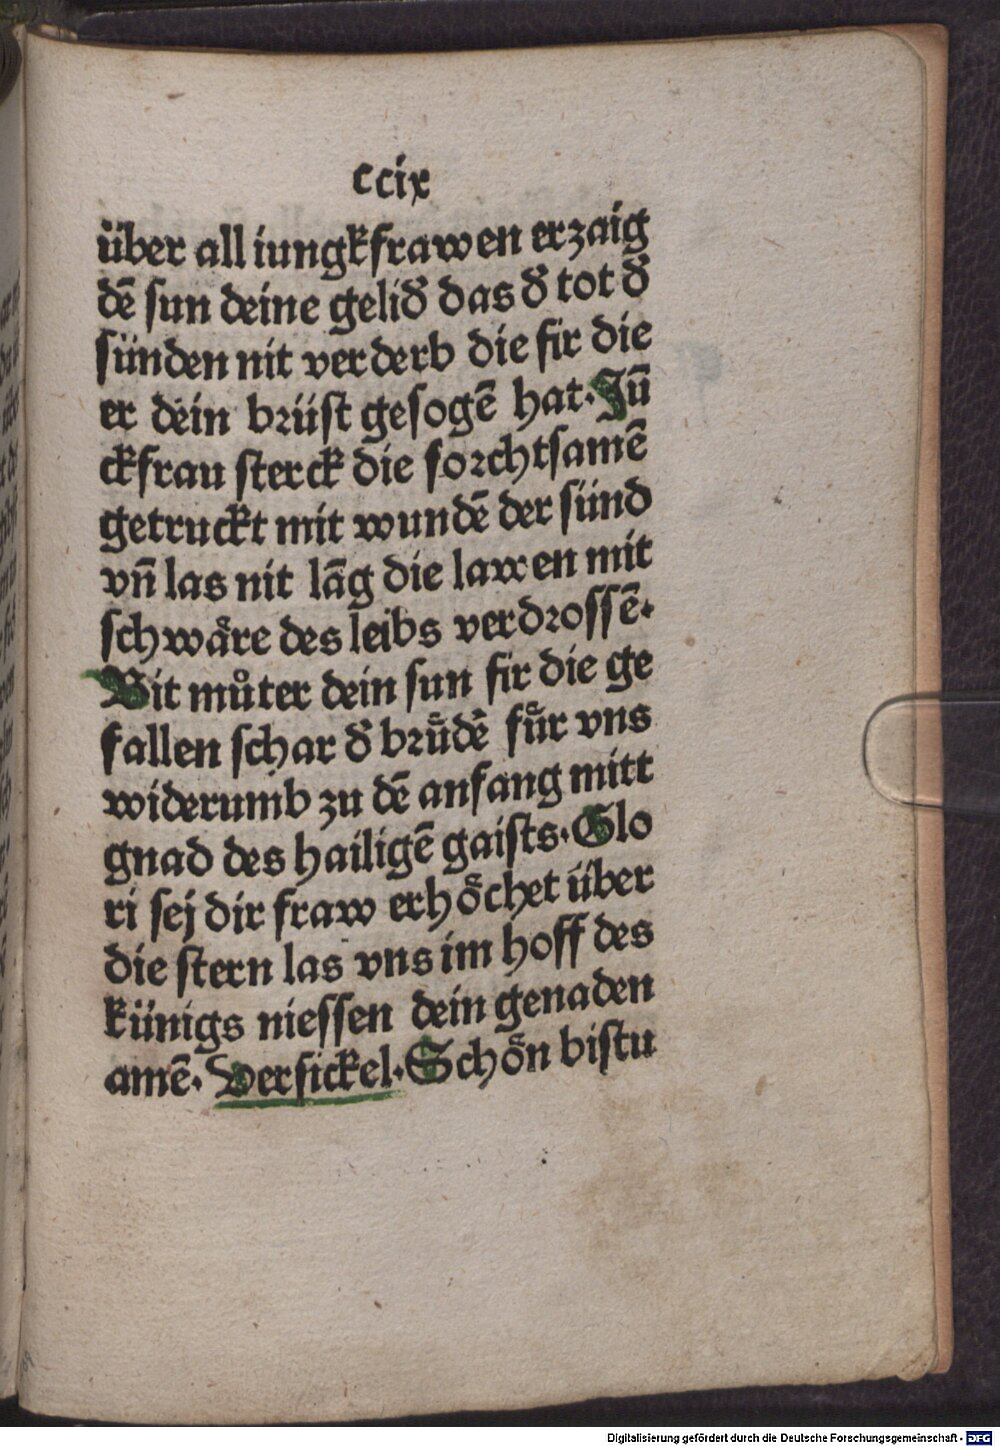 ccix
über all iungkfrawen erzaig
dē sun deine gelið das ð tot ð
sünden nit verderb die fir die
er dein brüst gesogē hat. Jū
ckfrau sterck die forchtsamē
getruckt mit wundē der sünd
vn̄ las nit lāg die lawen mit
schwäre des leibs verdrossē.
Bit můter dein sun fir die ge
fallen schar ð brůdē fůr vns
widerumb zu dē anfang mitt
gnad des hailigē gaists. Glo
ri sej dir fraw erhöchet über
die stern las vns im hoff des
künigs niessen dein genaden
amē. Versickel. Schön bistu
Digitalisierung gefördert durch die Deutsche Forschungsgemeinschaft - DFG